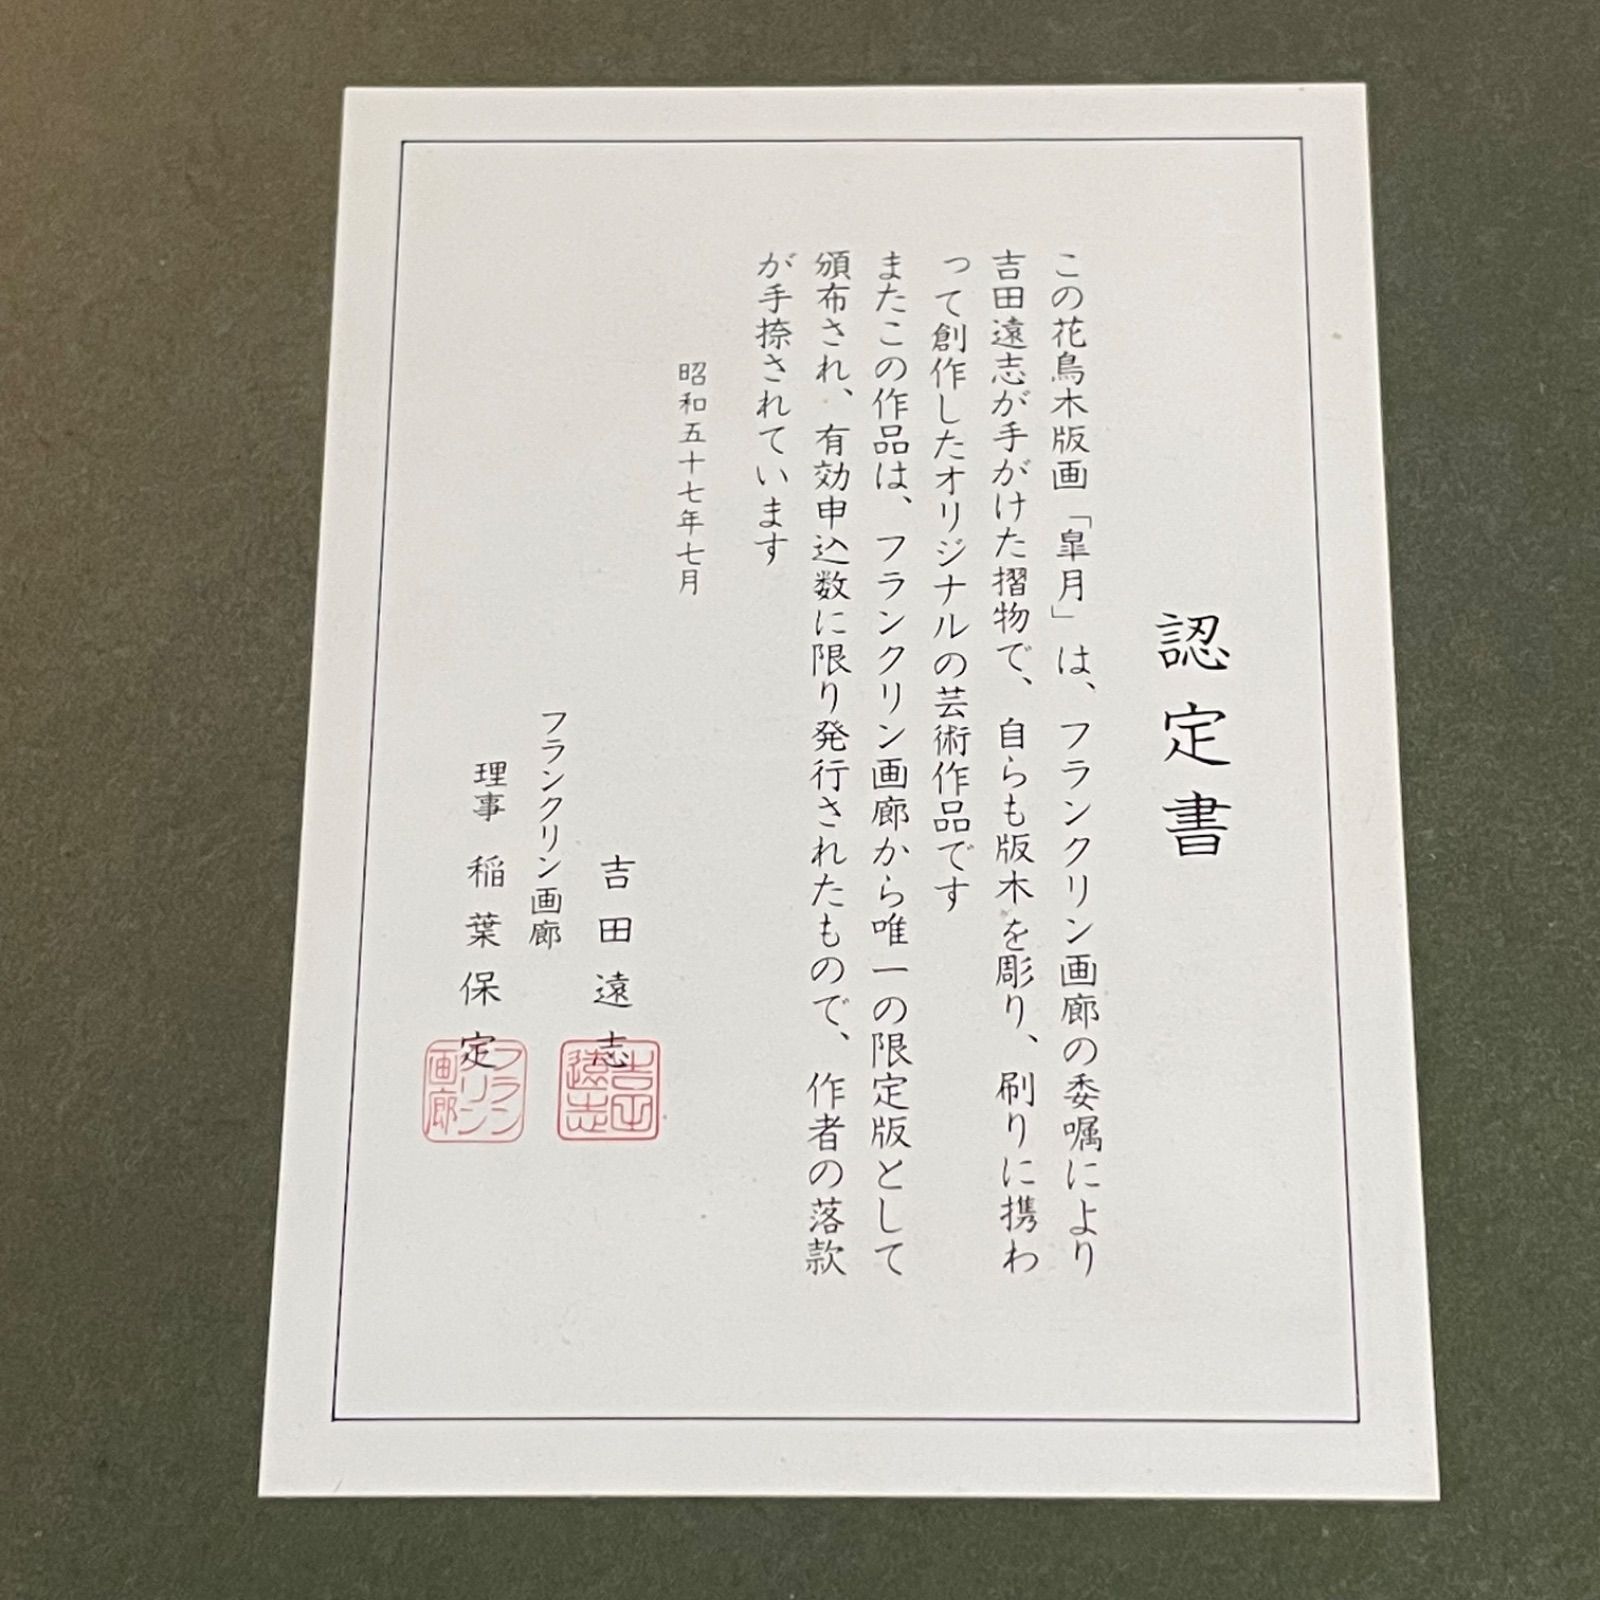 認定書
この花鳥木版画「皐月」は、フランクリン画廊の委嘱により
吉田遠志が手がけた摺物で、自らも版木を彫り、刷りに携わ
って創作したオリジナルの芸術作品です
またこの作品は、フランクリン画廊から唯一の限定版として
頒布され、有効申込数に限り発行されたもので、作者の落款
が手捺されています
昭和五十七年七月
吉田遠志
吉田遠志
フランクリン画廊
理事 稲葉保定
フランクリン画廊